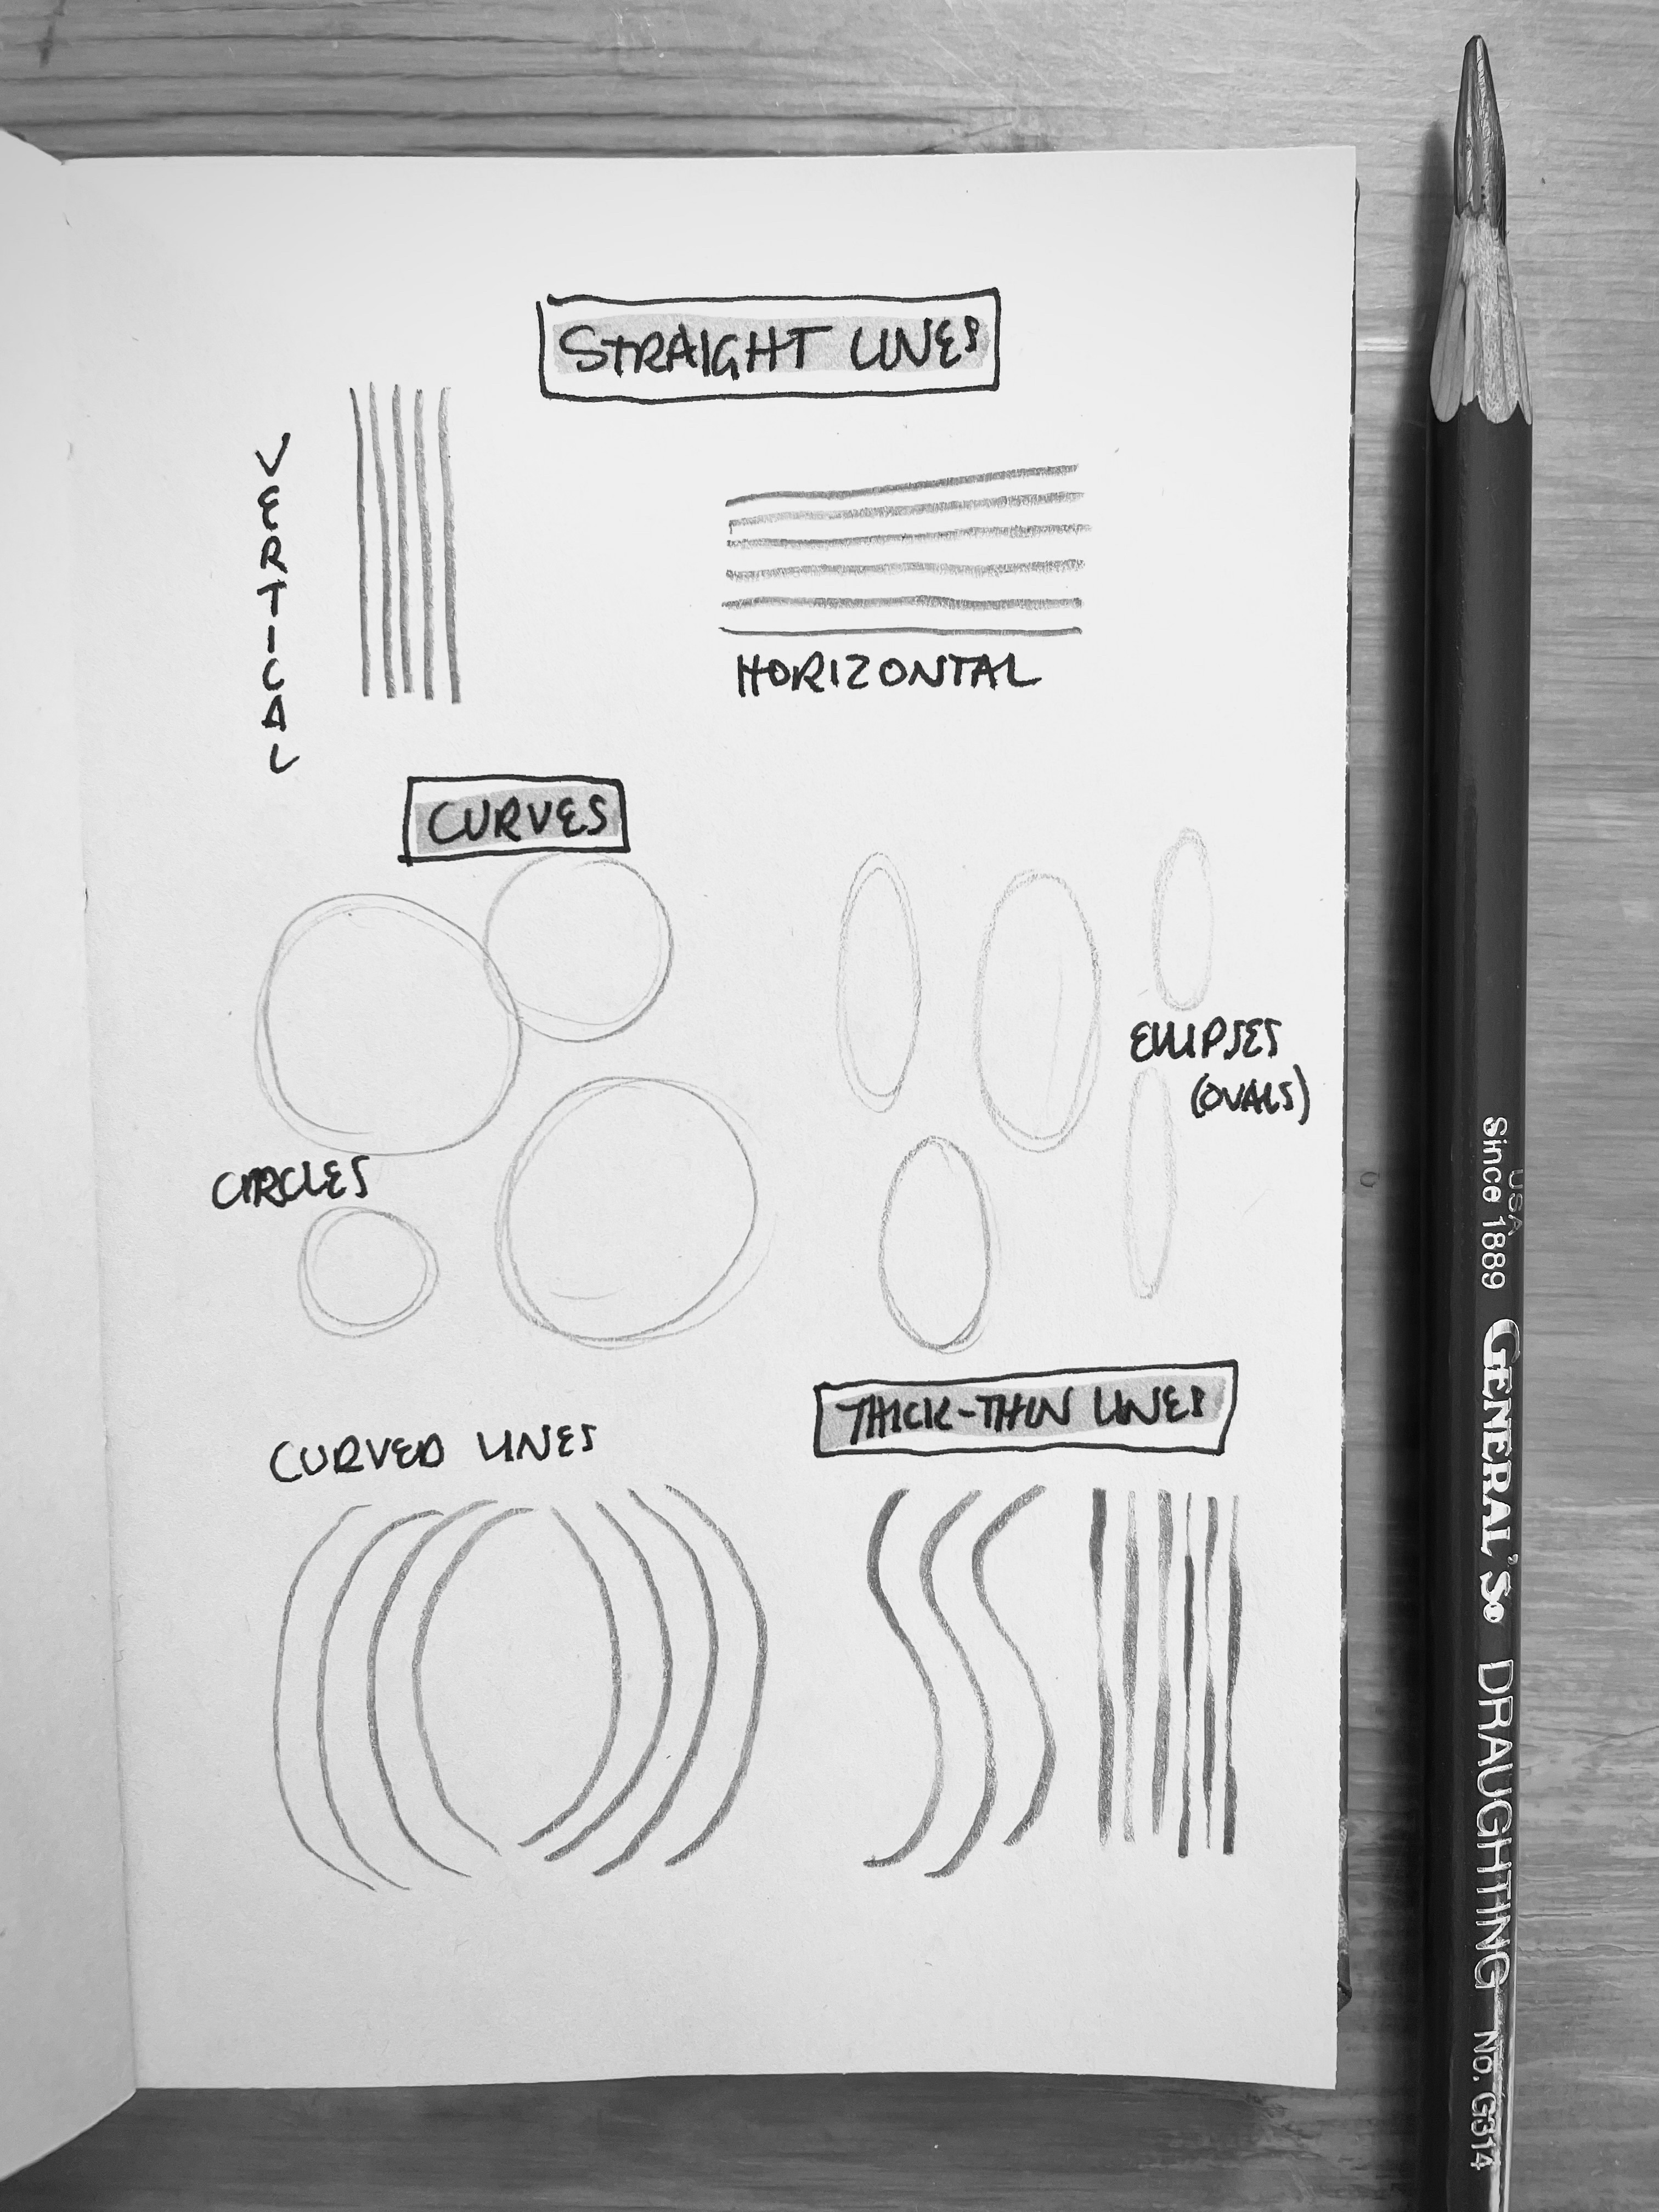 STRAIGHT LINES
VERTICAL
HORIZONTAL
CURVES
ELLIPSES
(OVALS)
CIRCLES
THICK-THIN LINES
CURVED LINES
USA
Since 1889 GENERAL'S DRAUGHTING No. G314